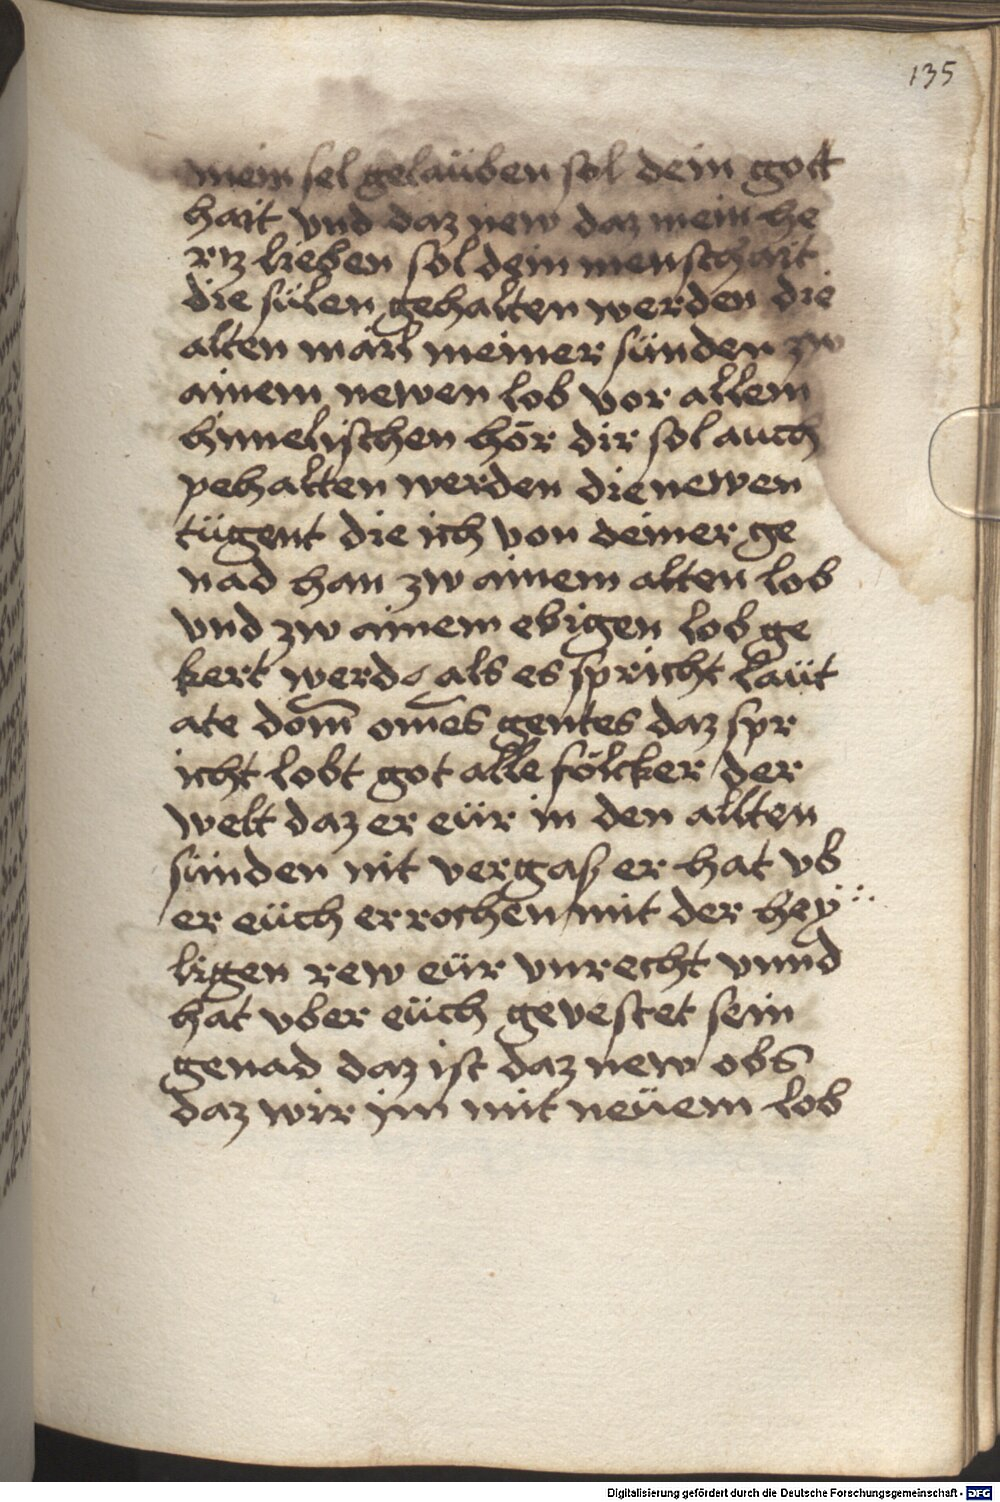 135
mein sel gelaüben sol dein gott
hait vnd daz new daz mein he
rtz lieben sol dein menschait
die sülen gehalten werden die
alten mäil meiner sünden zw
ainem newen lob vor allem
himelischen hör dir sol auch
pehalten werden die newen
tügent die ich von deiner ge
nad han zw ainem alten lob
vnd zw ainem ebigen lob ge
kert werd als es spricht laüt
ate dom̅ om̅es gentes daz spr
icht lobt got alle fölcker der
welt daz er eür in den allten
sünden nit vergasz er hat vb
er eüch errochen mit der hey
ligen rew eür vnrecht vnnd
hat vber eüch gevestet sein
genad daz ist daz new obs
daz wir im mit neüem lob
Digitalisierung gefördert durch die Deutsche Forschungsgemeinschaft - DFG